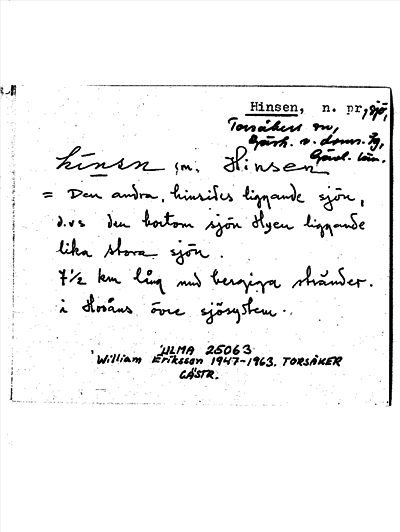 Hinsen, n. pr, sjö,
Torsåkers sn,
Gästr. v. doms. tg,
Gävl. län.
hinsn, m. Hinsen
= Den andra, hinsides liggande sjön,
d.v.s den bortom sjön Hyen liggande
lika stora sjön.
7 1/2 km lång med bergiga stränder.
i Hoåns övre sjösystem.
ULMA 25063
William Eriksson 1947-1963. TORSÅKER
GÄSTR.